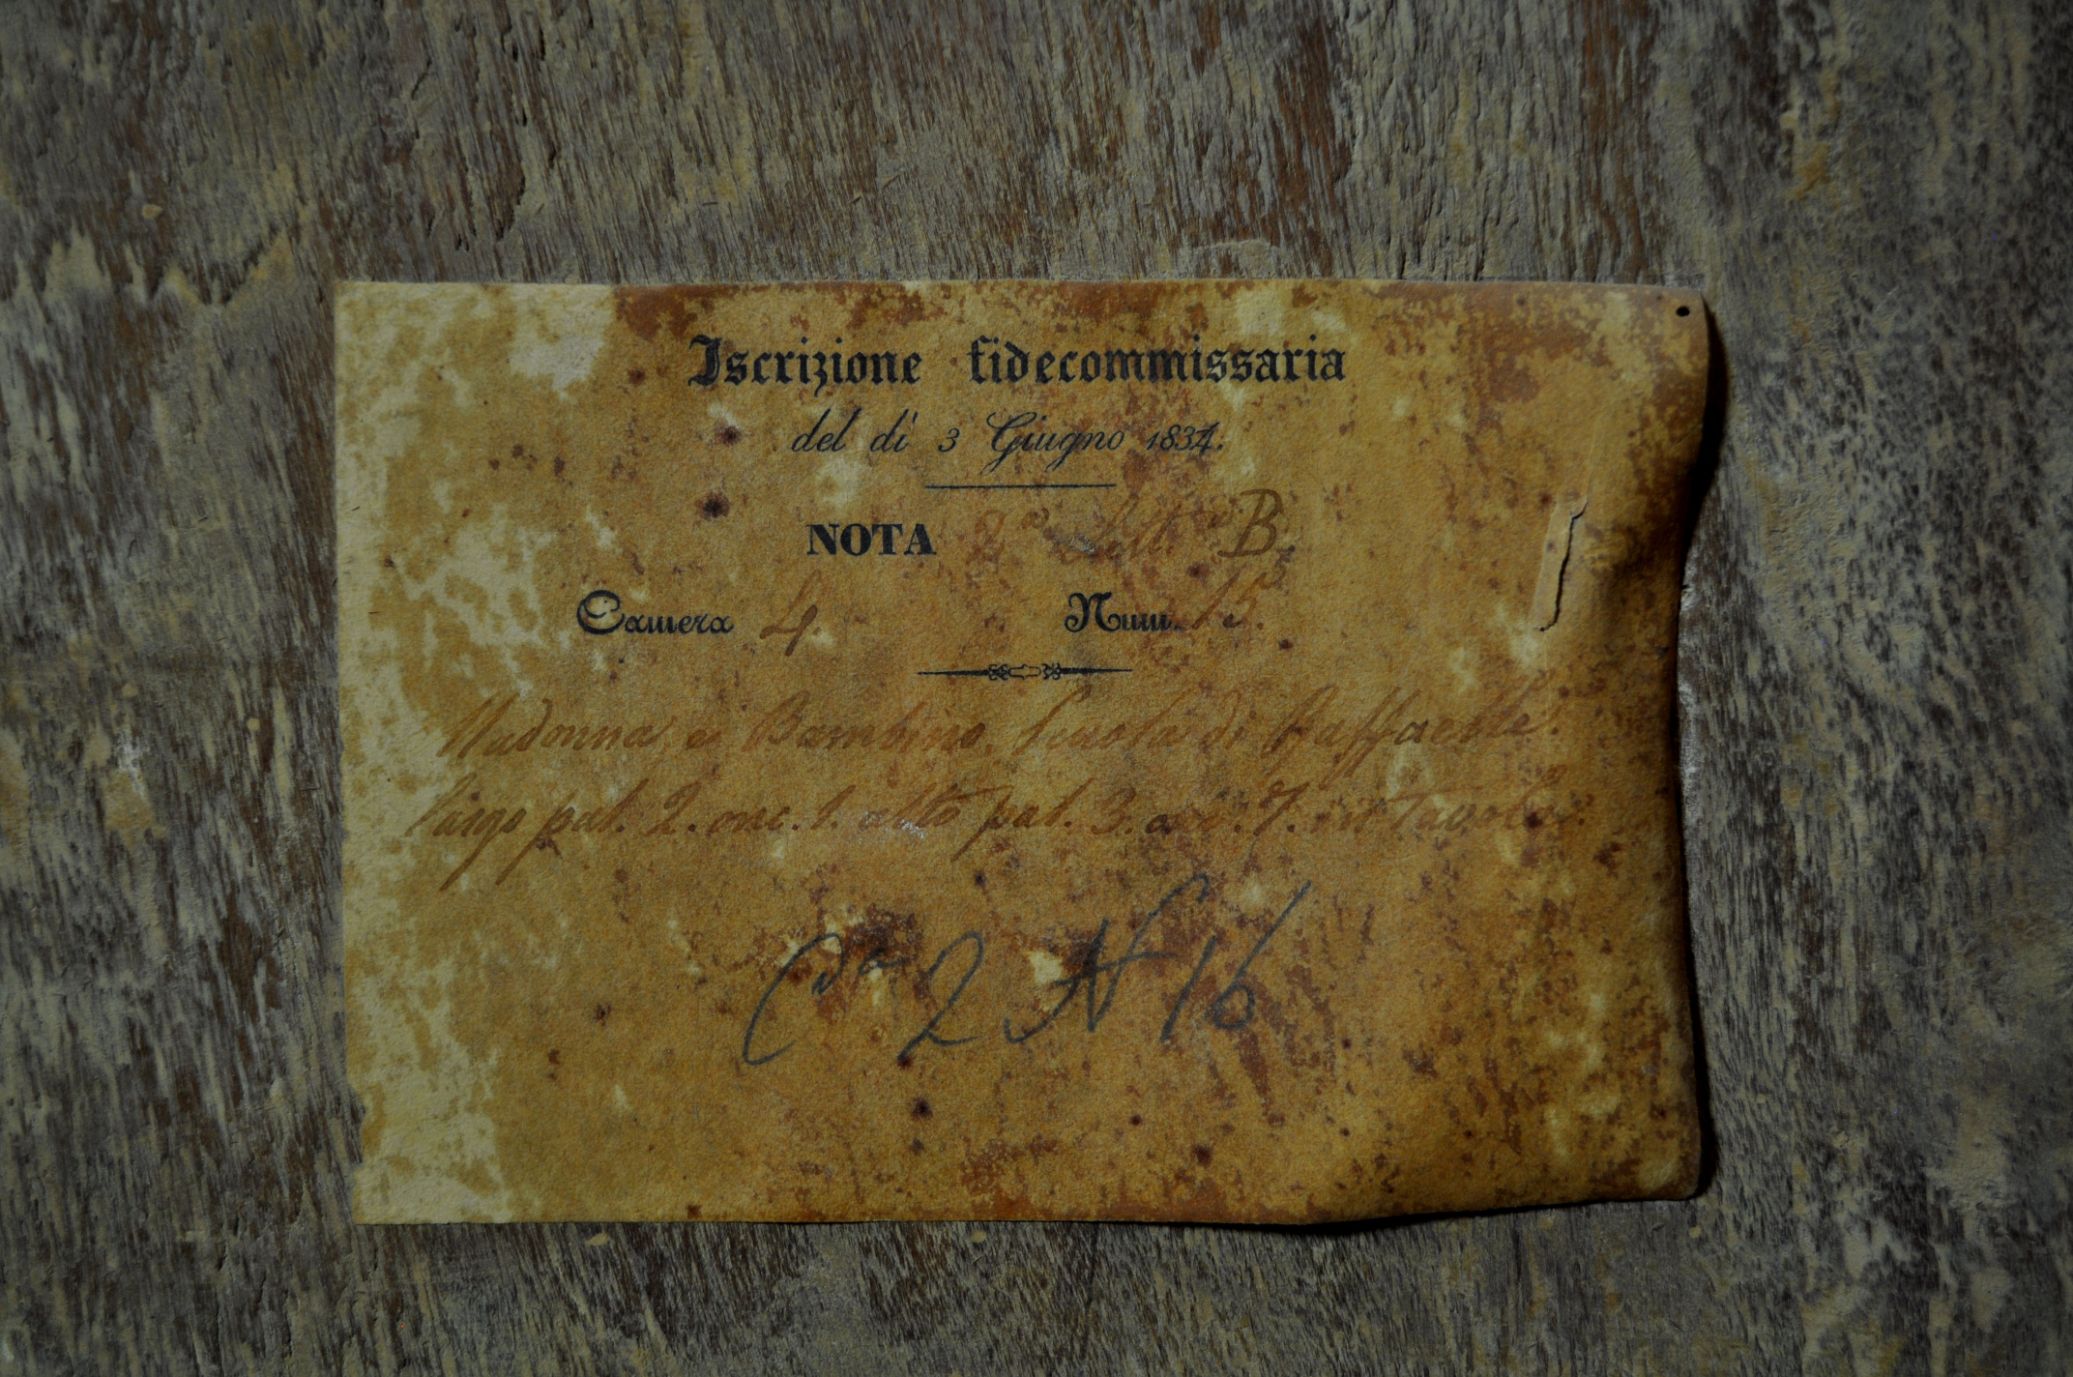 Iscrizione fidecommissaria
del dì 3 Giugno 1834.
NOTA 2ª Lettª B.
Camera 4. Num. 15.
Madonna, e Bambino, Scuola di Raffaelle.
largo pal. 2. onc. 1. alto pal. 3. onc. 7. in Tavola.
Cª 2 N 16